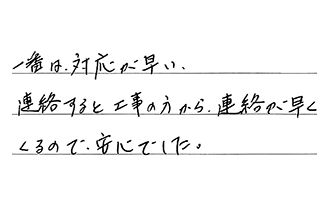 一番は、対応が早い、
連絡すると工事の方から、連絡が早く
くるので、安心でした。